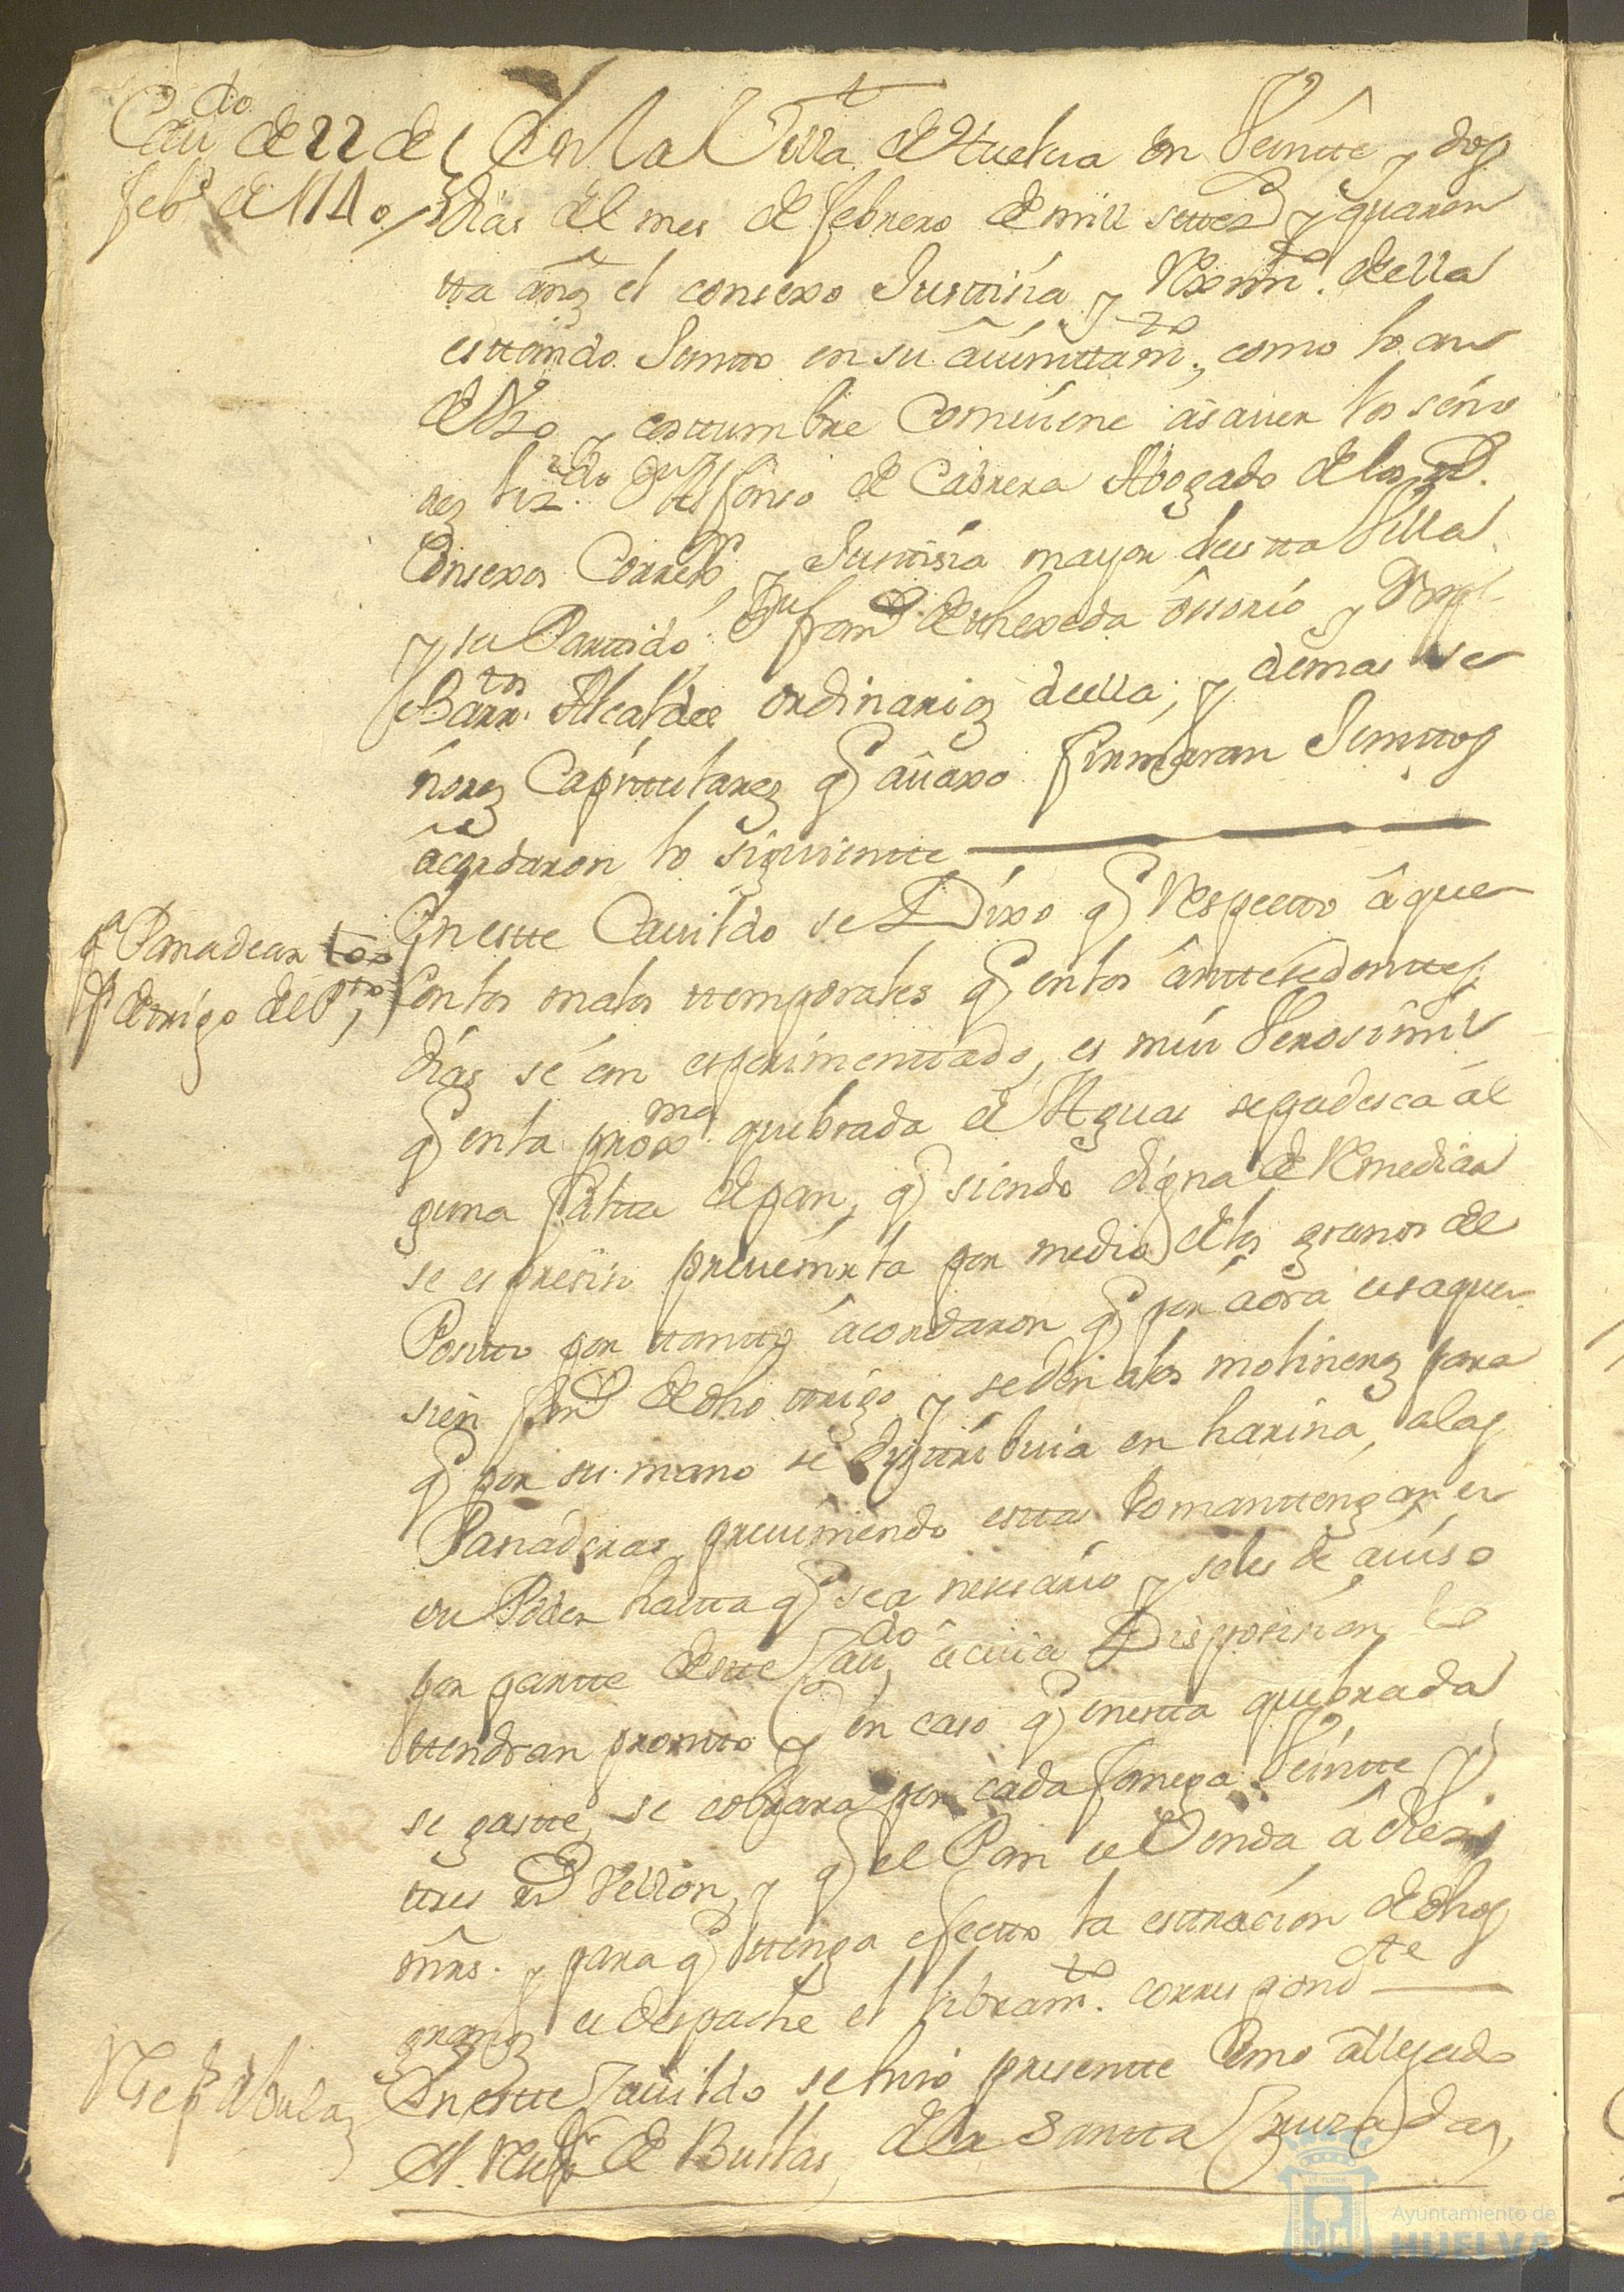 Caudo de 22 de
febo de 1740
En la Villa de Huelua en Veintte y dos
dias del mes de febrero de mill settezs y quaren
tta añs el consexo Justtisia y Reximto. della
esttando Juntto en su aiunttamto, como lo an
de Uso y costtumbre Comuiene asauer los seño
res lizdo Dn Alfonso de Cabrera Abogado de los Rs.
Consexos Correxor y Justtisia mayor destta Villa
y su Parttido, Dn franco de thexeda ôssorio y
Barrtos Alcaldes ordinarios della, y demas se
ñores Capittulares q auaxo firmaran Junttos
acordaron lo siguientte
qe Panadear
P. de trigo del Ptto,
En estte Cauildo se Dixo q Respectto â que
con los malos ttemporales q en los anttesedenttes
dias se an esperimenttado, es mui Verosimil
q en la proxma quebrada de Aguas se padesca al
guna faltta de pan, q siendo digna de Remediar
se es presiso preuenirla por medio de los granos del
Positto por ttantto acordaron q por aora se saquen
sien fans de dho ttrigo y se den a los molineros para
q por su mano se disttribuia en harina, a las
Panaderas preuiniendo esttas lo manttengan en
su Poder hastta q sea nesesario y se les de auiso
por partte destte Caudo â cuia Disposision lo
ttendran prontto y en caso q en estta quebrada
se gastte, se cobrara por cada fanega Veintte y
ttres rs Vellon, y q el Pan se Venda â diez
mrs. y para q ttenga efectto la esttracion de dhos
granos se despache el libramto. correspondte
Rse pr d bulas
En estte Cauildo se hiso presentte Como a llegado
el Rexor de Bullas, de la Santta Cruzada,
Ayuntamiento de
HUELVA